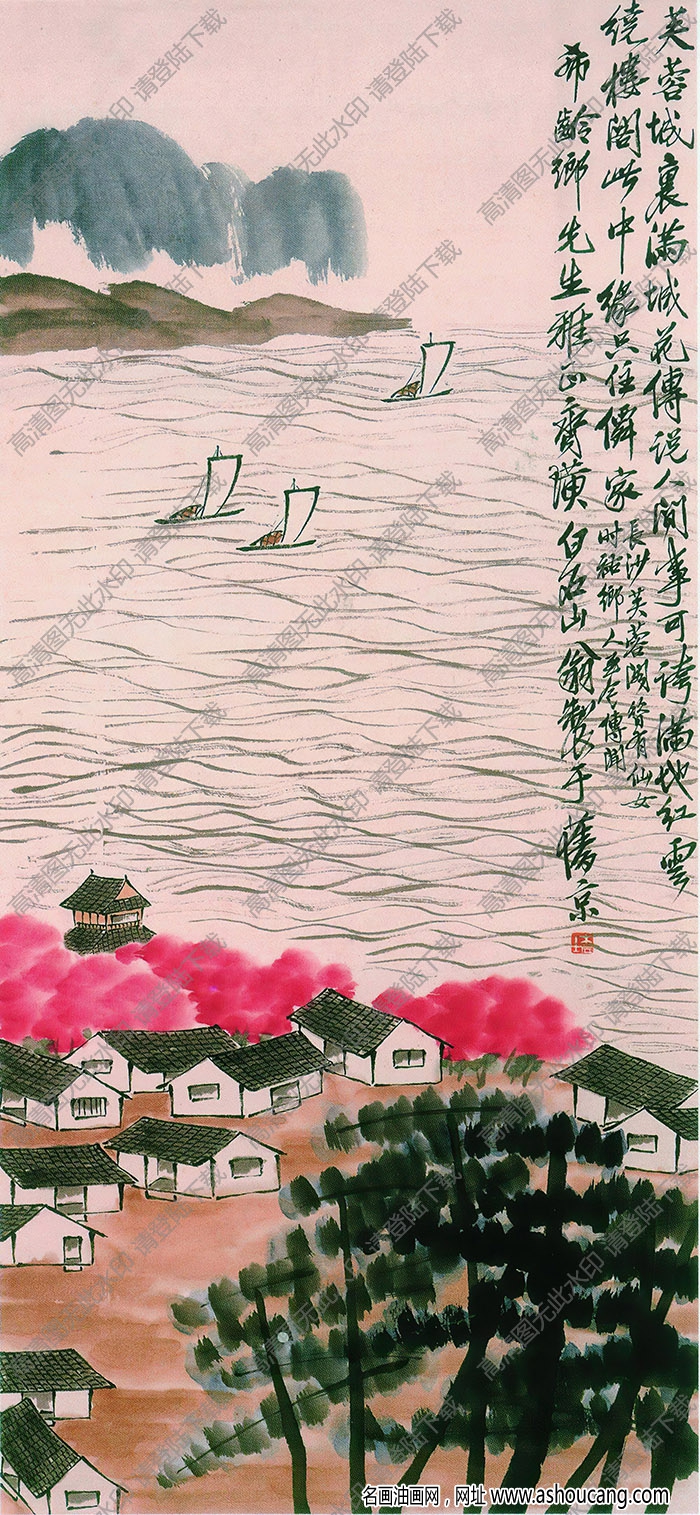 芙蓉城裏滿城花傳説人間事可誇滿地紅雲
繞樓閣此中緣只住僊家
長沙芙蓉閣曾有仙女
时
鄉人至今傳聞
希齡鄉先生雅正齊璜白石山翁製于舊京
高清图无此水印 请登陆下载
名画油画网，网址 www.ashoucang.com